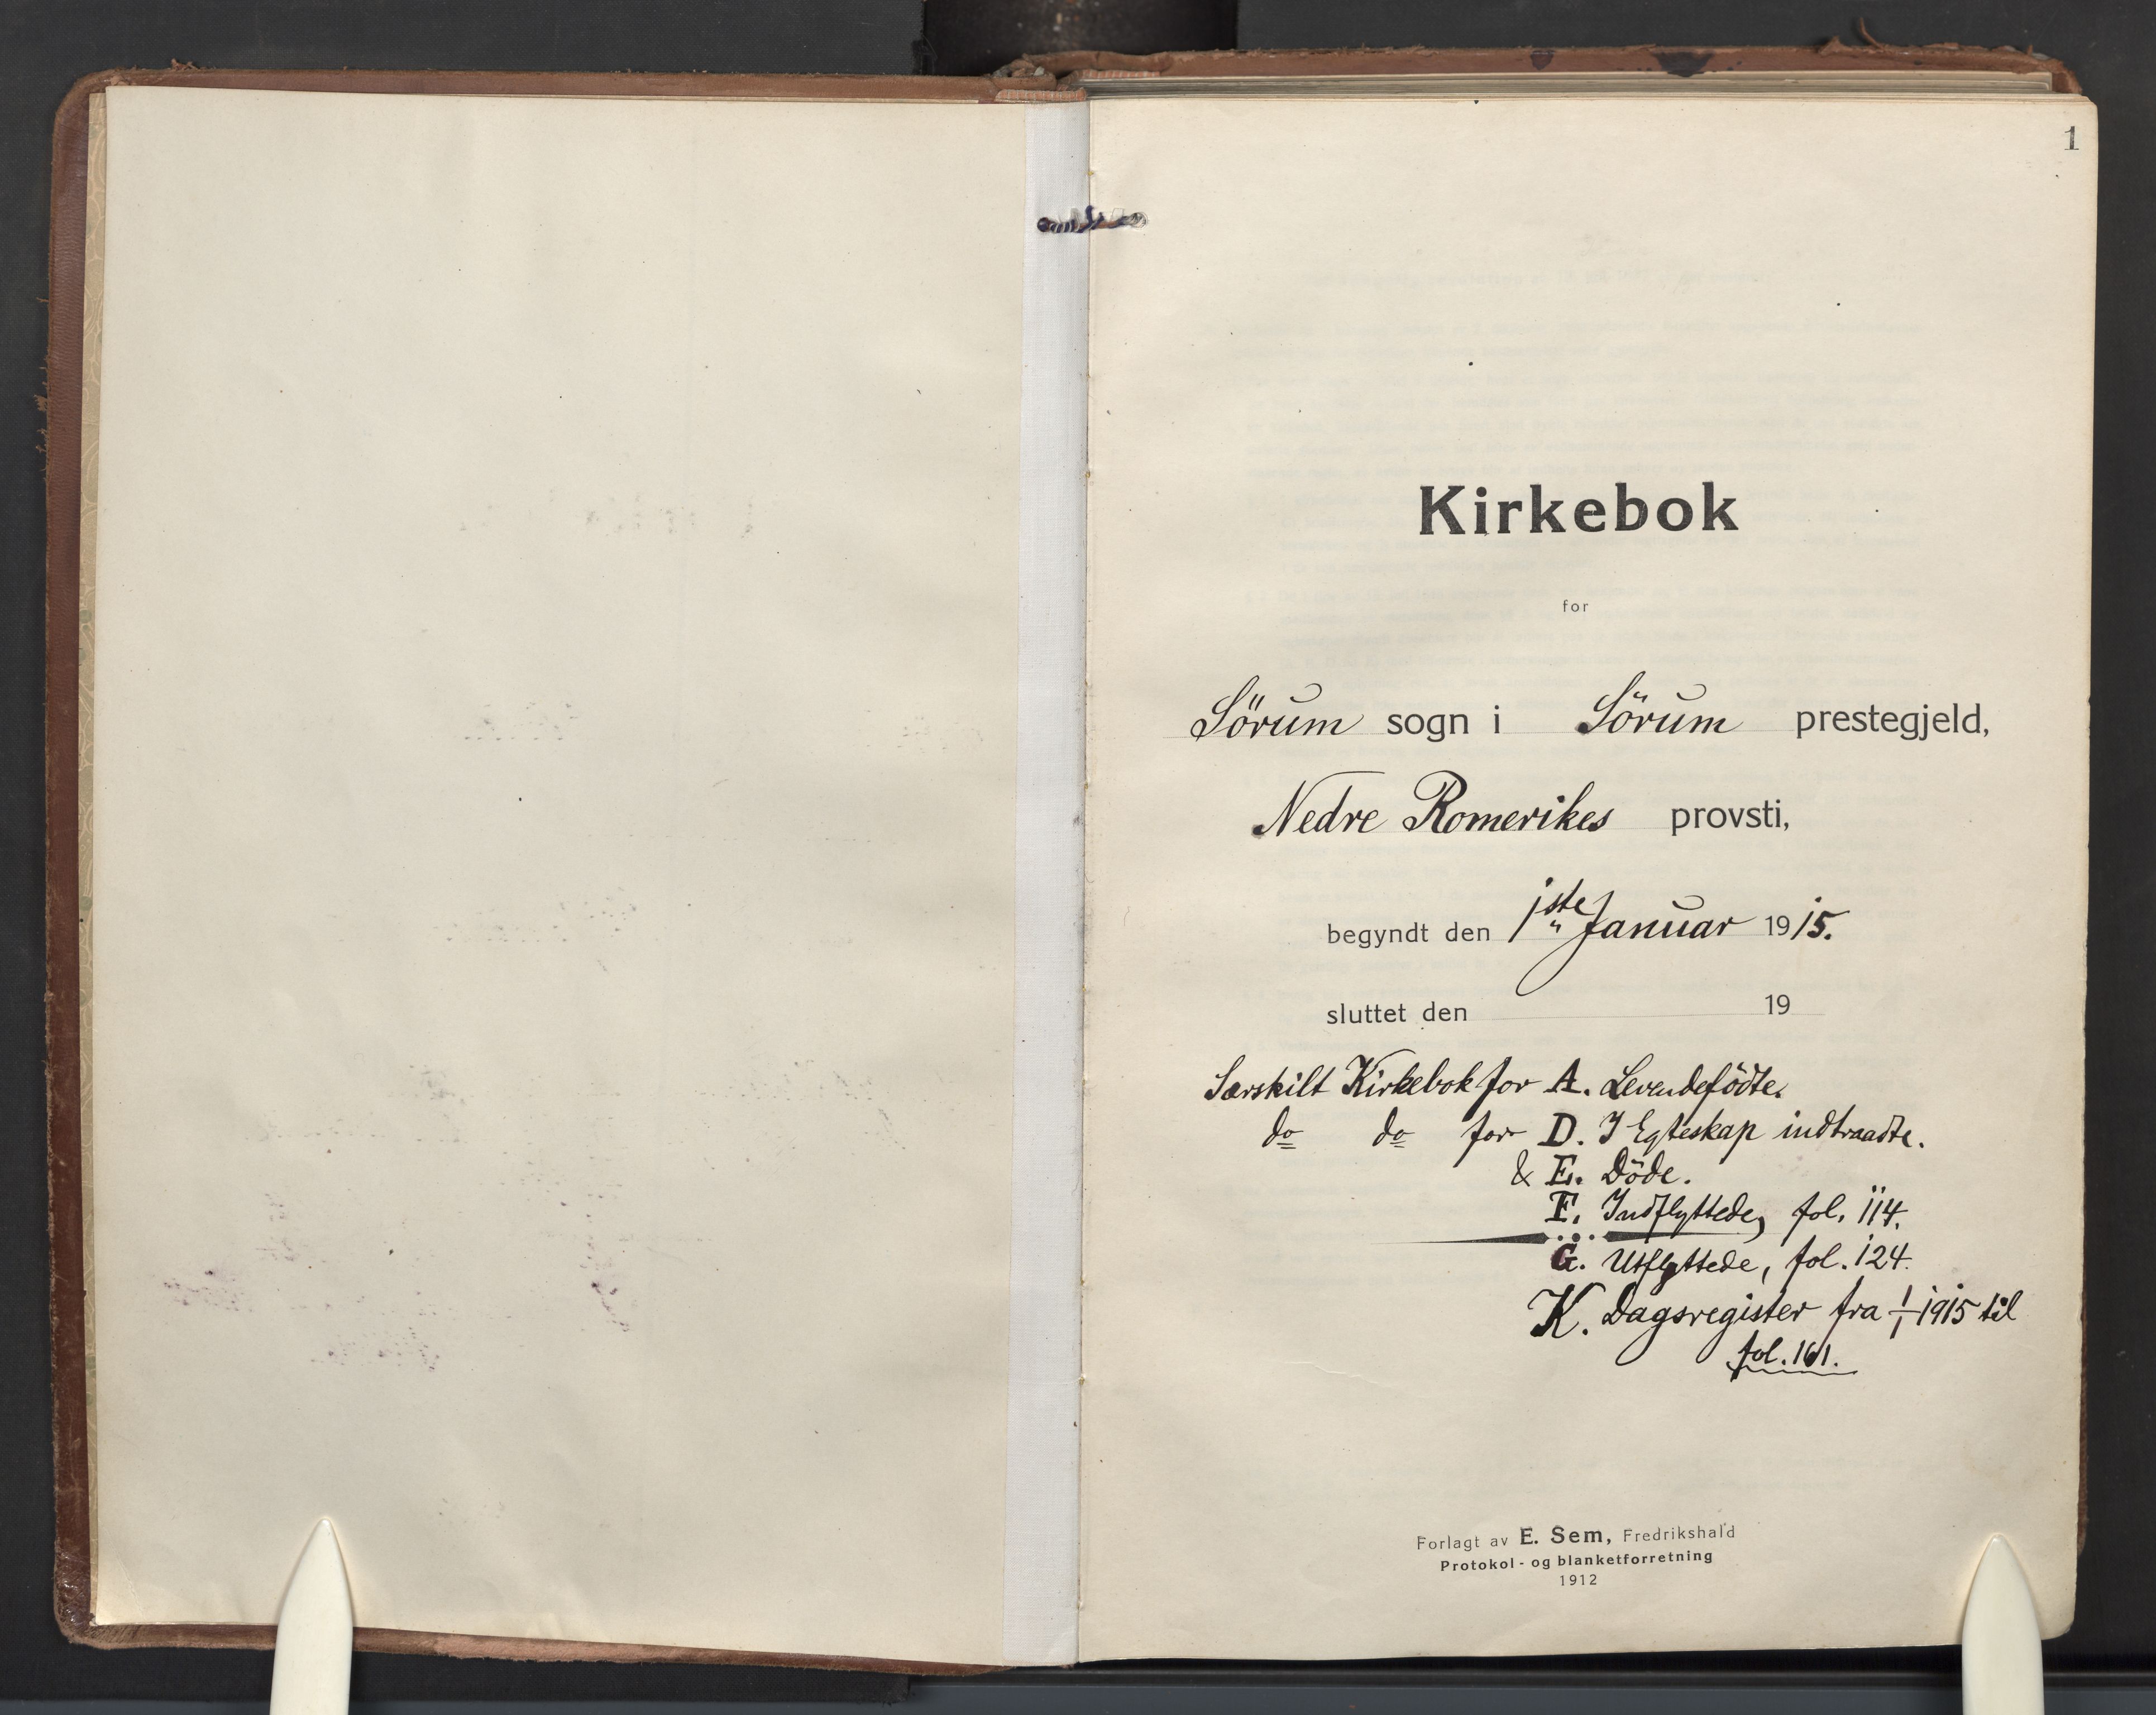 1
Kirkebok
for
Sörum sogn i Sörum prestegjeld,
Nedre Romerikes provsti,
begyndt den 1ste Januar 1915.
sluttet den 19
Særskilt Kirkebok for A. Levendefödte.
do do for D. I Egteskap indtraadte.
& E. Döde.
F. Indflyttede, fol. 114.
G. Utflyttede, fol. 124.
K. Dagsregister fra 1/1 1915 til
fol. 161.
Forlagt av E. Sem, Fredrikshald
Protokol- og blanketforretning
1912